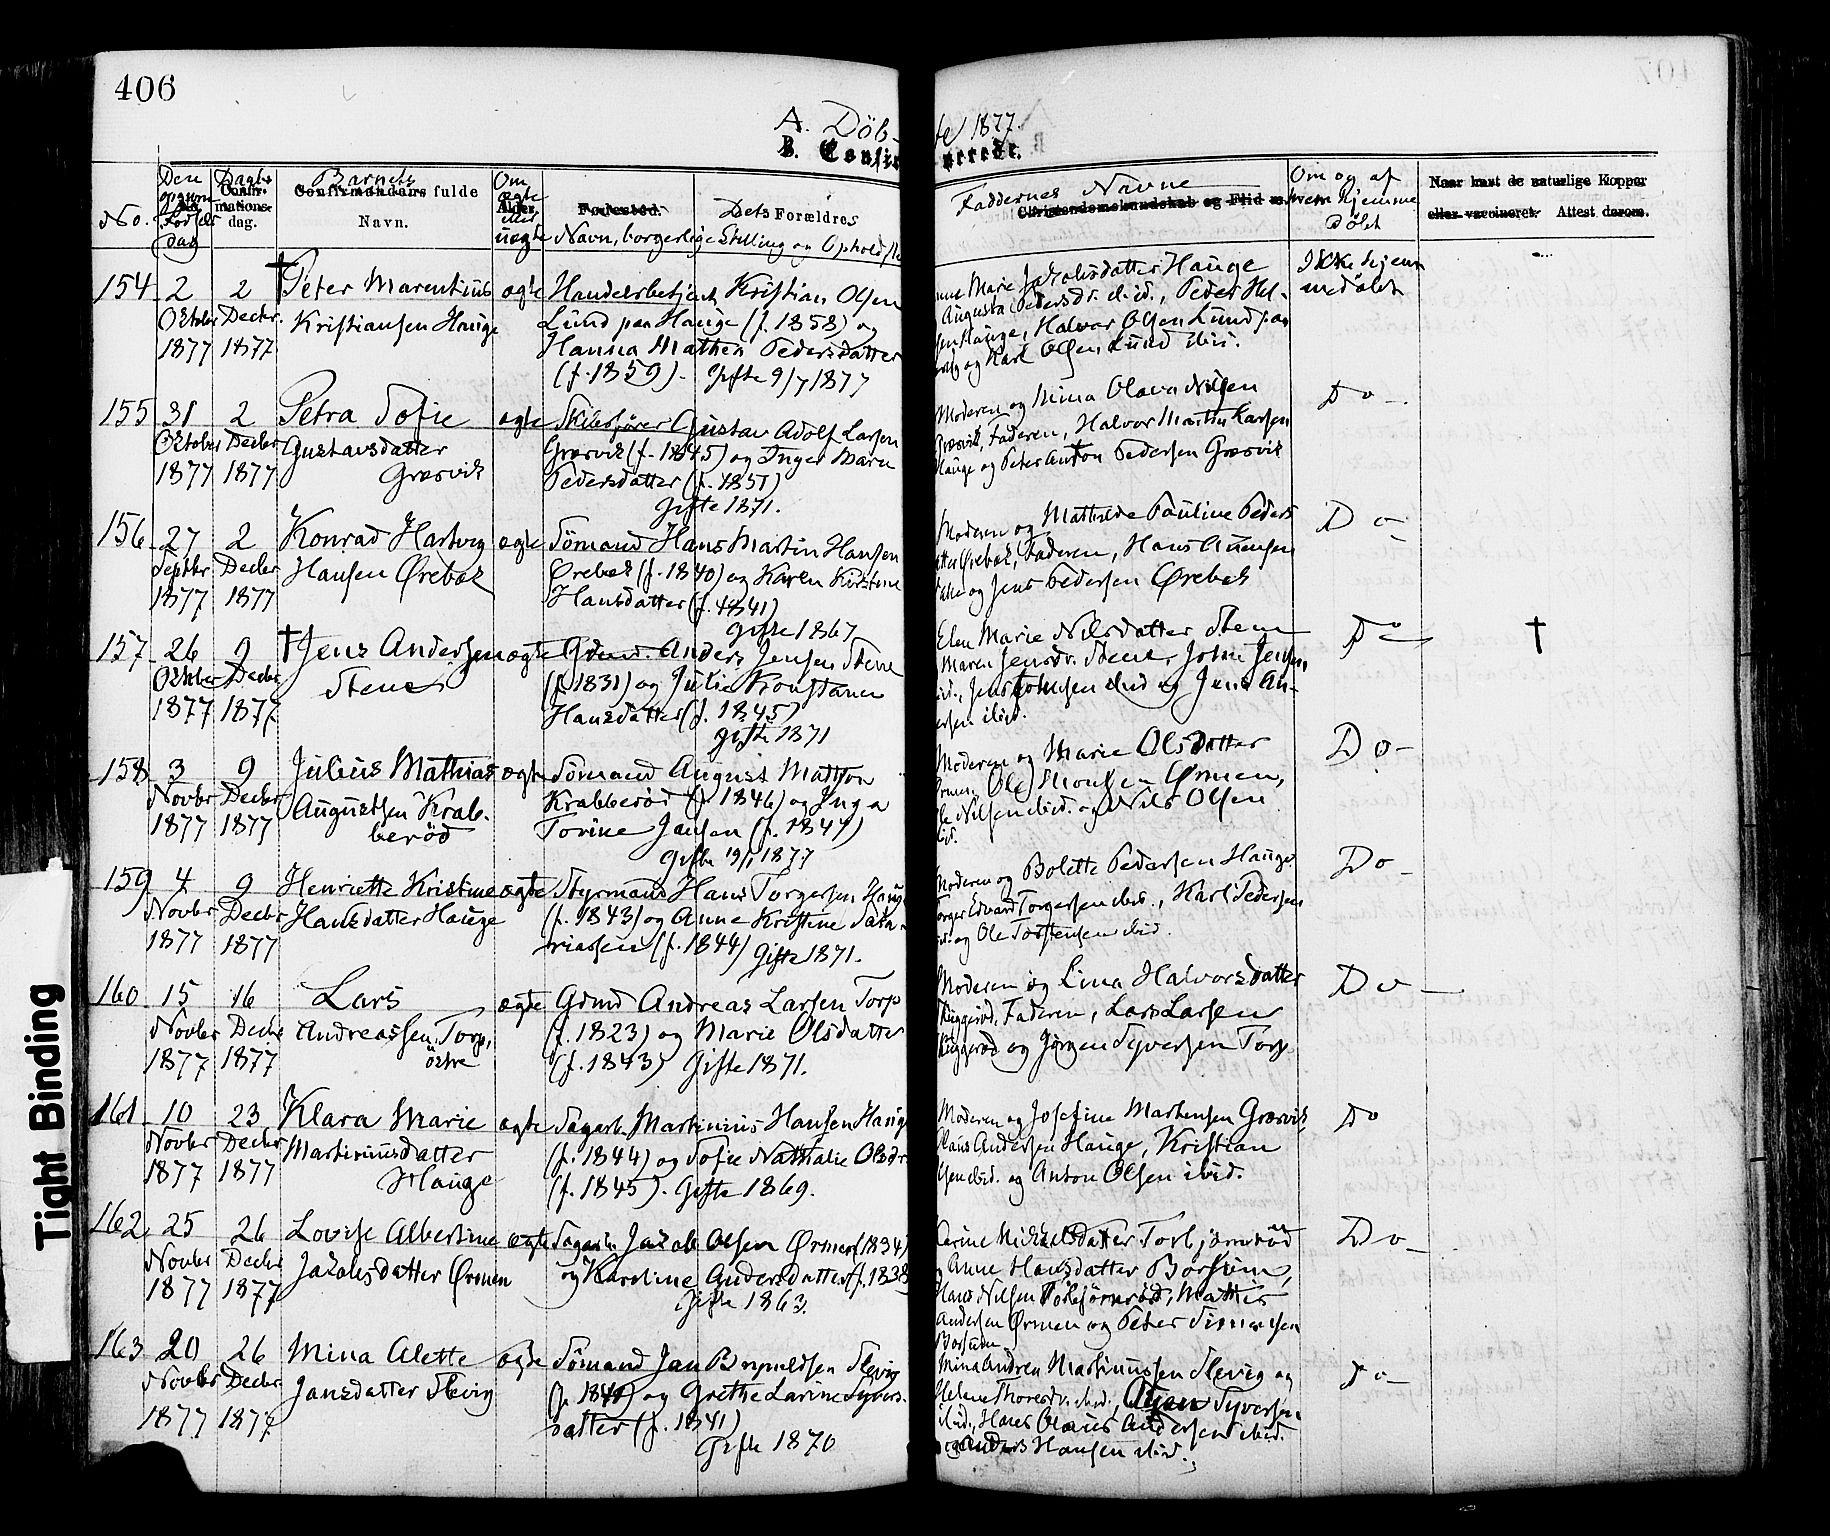 406
A. Döb- te 1877.
B. Confir merede.
No.
Den opgivne Födsels dag
Daabs Confirmations- dag.
Barnets Confirmandens fulde Navn.
Om ægte eller uægte Alder.
Fødested. Dets Forældres
Navn, borgerlige Stilling og Opholdsste
Faddernes Navne
Christendomskundskab og Flid
Om og af hvem hjemme döbt
Naar havt de naturlige Kopper
eller vaccineret. Attest derom.
154 2 Oktober 1877 2 Decbr. 1877
† Peter Marentius
Kristiansen Hauge
ægte
Handelsbetjent Kristian Olsen
Lund paa Hauge (f. 1858) og
Hanna Mathea Pedersdatter
(f. 1859). Gifte 9/7 1877
Marie Jakobsdatter Hauge
Augusta Pedersdr. ibid., Peder
Hauge, Halvor Olsen Lund paa
og Karl Olsen Lund ibid.
Ikke hjemmedöbt
155 31 Oktober 1877 2 Decbr 1877
Petra Sofie
Gustavsdatter
Græsvik
ægte
Skibsfører Gustav Adolf Larsen
Græsvik (f. 1845) og Inger Marie
Pedersdatter (f. 1851)
Gifte 1871.
Moderen og Mina Olava Nilsen
Græsvik, Faderen, Halvor Martin Larsen
Hauge og Peter Anton Pedersen Græsvik
Do -
156 27 Septbr 1877 2 Decbr 1877
Konrad Hartvig
Hansen Ørebæk
ægte
Sömand Hans Martin Hansen
Ørebæk (f. 1840) og Karen Kirstine
Hansdatter (f. 1841)
Gifte 1867
Moderen og Mathilde Pauline Peders
atter Ørebæk, Faderen, Hans
og Jens Pedersen Ørebæk
Do -
157 26 Oktober 1877 9 Decbr 1877
† Jens Andersen
Stene
ægte
Grdmd. Anders Jensen Stene
(f. 1831) og Julie Konstance
Hansdatter (f. 1845)
gifte 1871
Elen Marie Nilsdatter Stene
Maren Jensdr. Stene, Johan Jensen
ibid., Jens Johnsen ibid og Jens An-
ersen ibid.
Do -
†
158 3 Novbr 1877 9 Decbr 1877
Julius Mathias
Augustsen Krab-
beröd
ægte
Sömand August Matson
Krabberöd (f. 1846) og Inga
Torine Jansen (f. 1847)
Gifte 19/1 1877
Moderen og Marie Olsdatter
Ørmen, Ole Ørmen,
Nilsen ibid. og Nils Olsen
ibid.
Do -
159 4 Novbr 1877 9 Decbr 1877
Henriette Kristine
Hansdatter Hauge
ægte
Styrmand Hans Torgersen Haug
(f. 1843) og Anne Kristine Saka-
riassen (f. 1844) Gifte 1871.
Moderen og Bolette Pedersen Hauge
Torger Edvard Torgersen ibid., Karl Pedersen
ibid. og Ole Torstensen ibid.
Do -
160 15 Novbr 1877 16 Decbr 1877
Lars
Andreassen Torp,
östre
ægte
Grmd Andreas Larsen Torp
(f. 1823) og Marie Olsdatter
(f. 1843) Gifte 1871.
Moderen og Lina Halvorsdatter
Faderen, Lars Larsen
og Jörgen Syversen Torp
Do -
161 10 Novbr 1877 23 Decbr 1877
Klara Marie
Martiniusdatter
Hauge
ægte
Sagarb. Martinius Hansen Haug
(f. 1844) og Sofie Nathalie Olsdr.
(f. 1845). Gifte 1869.
Moderen og Josefine Martensen Græsvik
Klaus Andersen Hauge, Kristian
Olsen ibid. og Anton Olsen ibid.
Do
162 25 Novbr 1877 26 Decbr 1877
Lovise Albertine
Jakobsdatter Ørmen
ægte
Sagarb. Jakob Olsen Ørmen (f. 1834)
og Karoline Andersdatter (f. 1838
Gifte 1863.
Karine Mickelsdatter Torbjörnröd
Anne Hansdatter Borsum,
Hans Nilsen Torbjörnröd, Mattis
Andersen Ørmen og Peter Simensen
Borsum
Do -
163 20 Novbr 1877 26 Decbr 1877
Mina Alette
Jansdatter Slevig
ægte
Sömand Jan Slevig
(f. 1840) og Grethe Larine Syvers-
datter (f. 1841)
Gifte 1870
Mina Andrea Martinussen Slevig og
Helene Thoresdr. ibid., Syversen
ibid., Hans Olaus Andersen ibid.
og Anders Hansen ibid.
Do -
Tight Binding